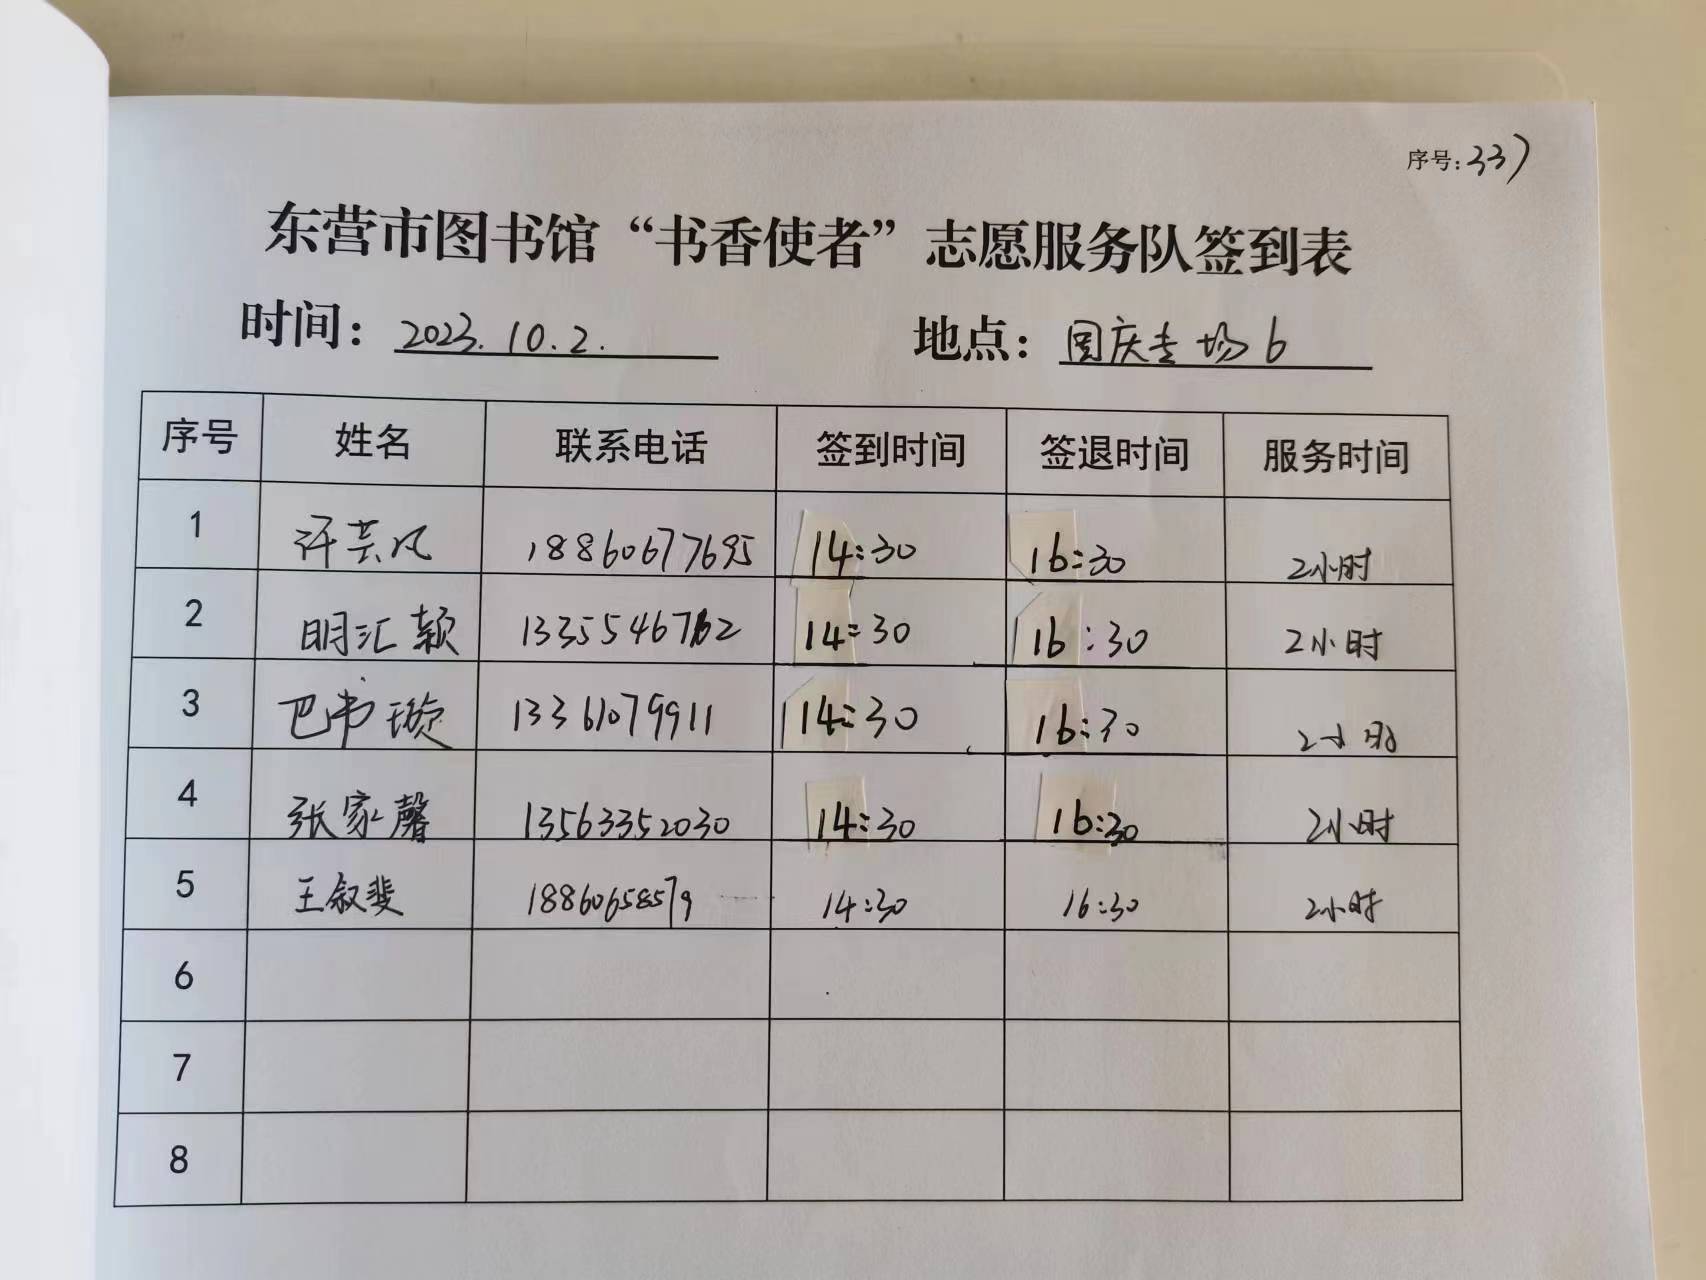 序号:337
东营市图书馆“书香使者”志愿服务队签到表
时间: 2023.10.2. 地点: 国庆专场6
序号 姓名 联系电话 签到时间 签退时间 服务时间
1 许芸凡 18860677695 14:30 16:30 2小时
2 明汇颖 13355467162 14:30 16:30 2小时
3 巴书璇 13361079911 14:30 16:30 2小时
4 张家馨 13563352030 14:30 16:30 2小时
5 王叙斐 18860658579 14:30 16:30 2小时
6
7
8